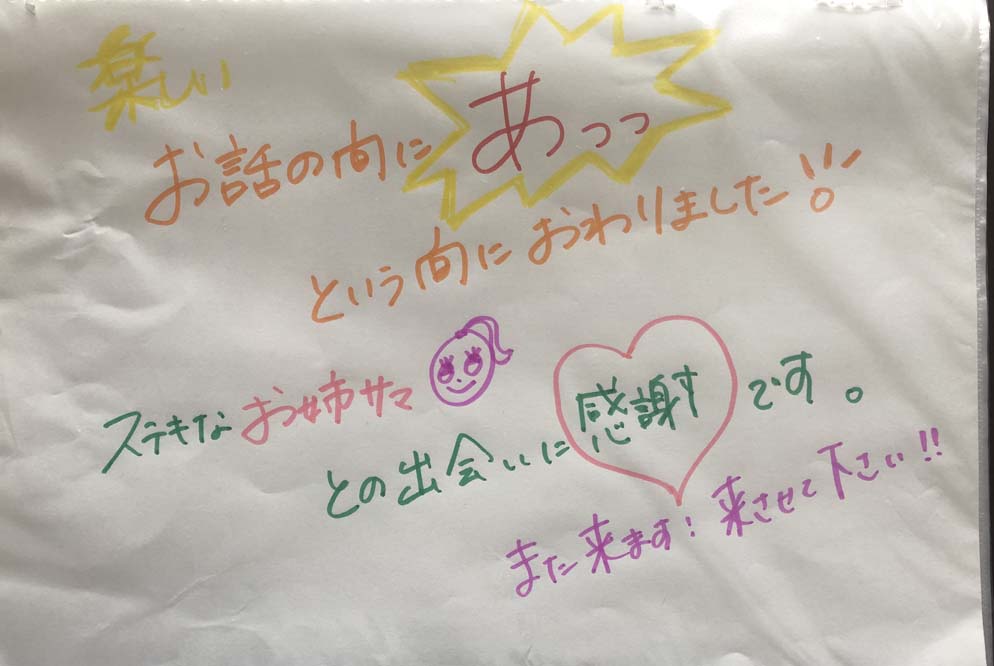 楽しい
お話の間に あっっ
という間におわりました!!
ステキなお姉サマ
との出会いに感謝す です。
また来ます! 来させて下さい!!